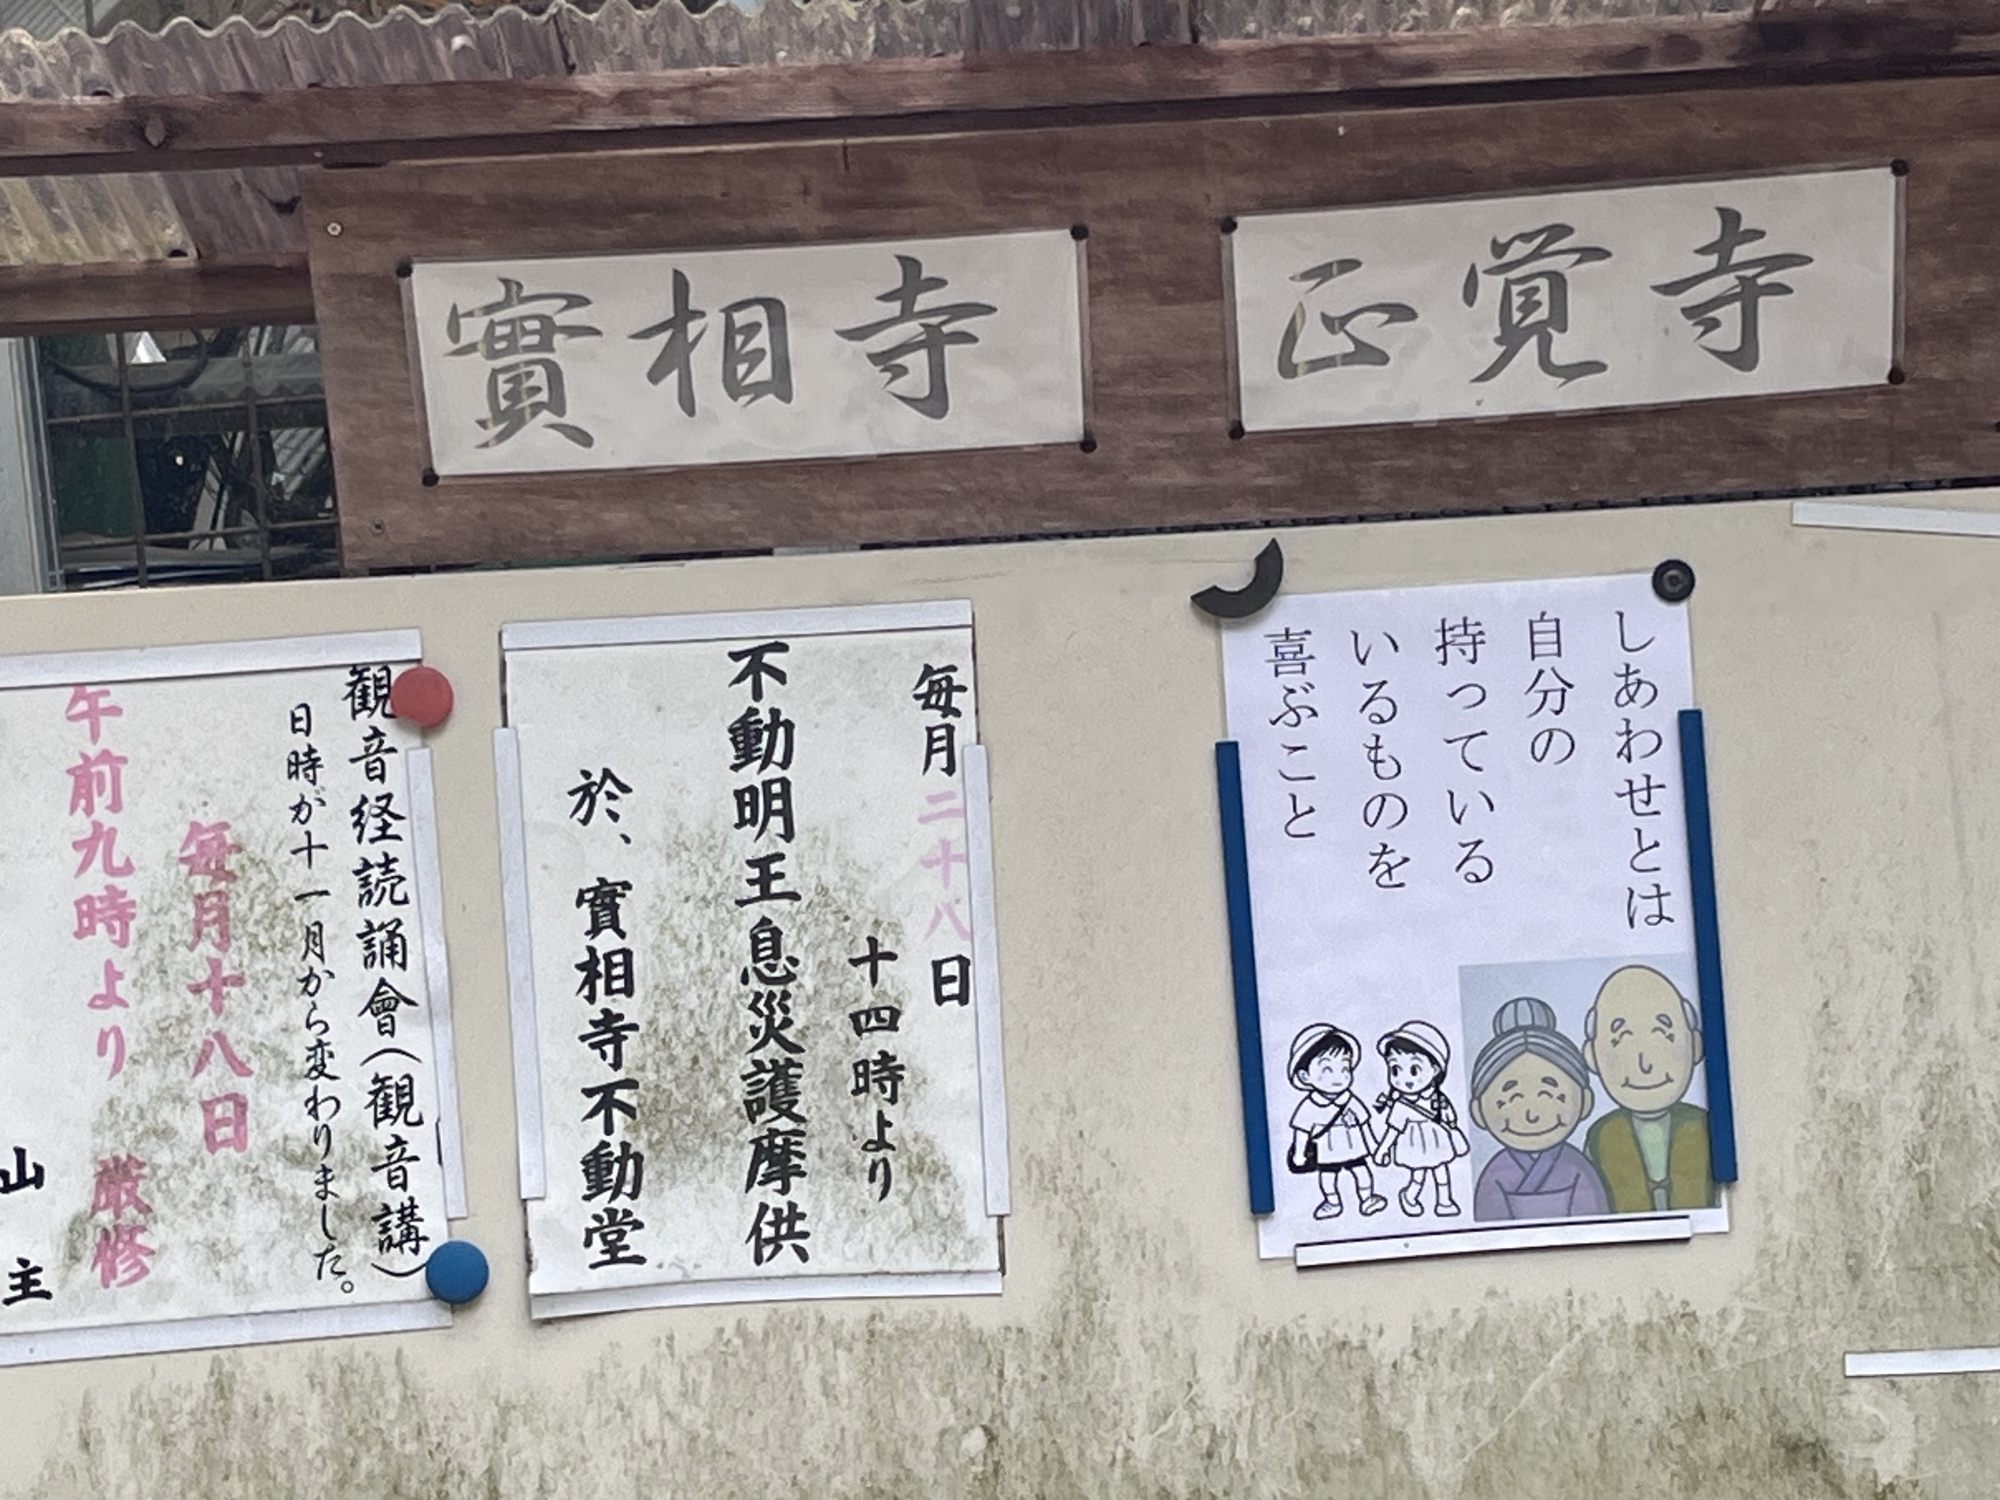 實相寺
正覚寺
しあわせとは
自分の
持っている
いるものを
喜ぶこと
毎月二十八日
十四時より
不動明王息災護摩供
於、實相寺不動堂
観音経読誦會(観音講)
日時が十一月から変わりました。
毎月十八日
午前九時より 厳修
山主